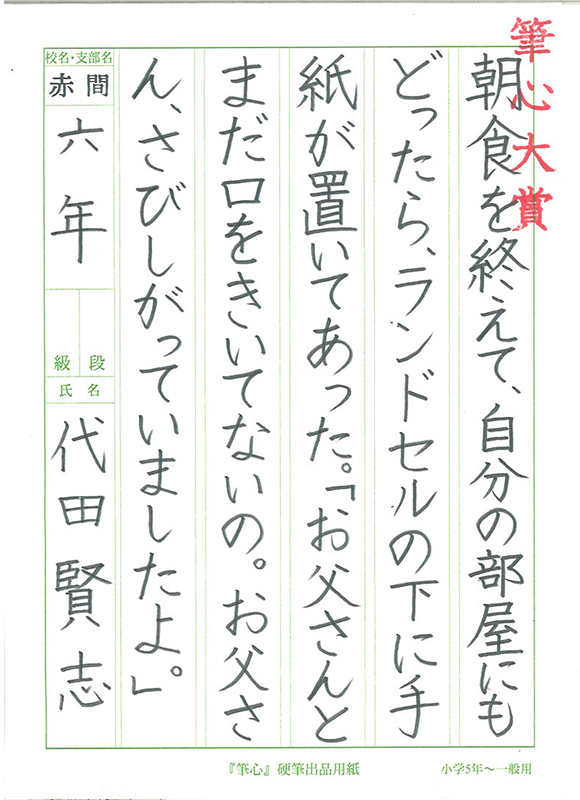 筆心大賞
朝食を終えて、自分の部屋にも
どったら、ランドセルの下に手
紙が置いてあった。「お父さんと
まだ口をきいてないの。お父さ
ん、さびしがっていましたよ。」
校名・支部名
赤間
六年
級 段
氏名
代田賢志
『筆心』硬筆出品用紙
小学5年〜一般用